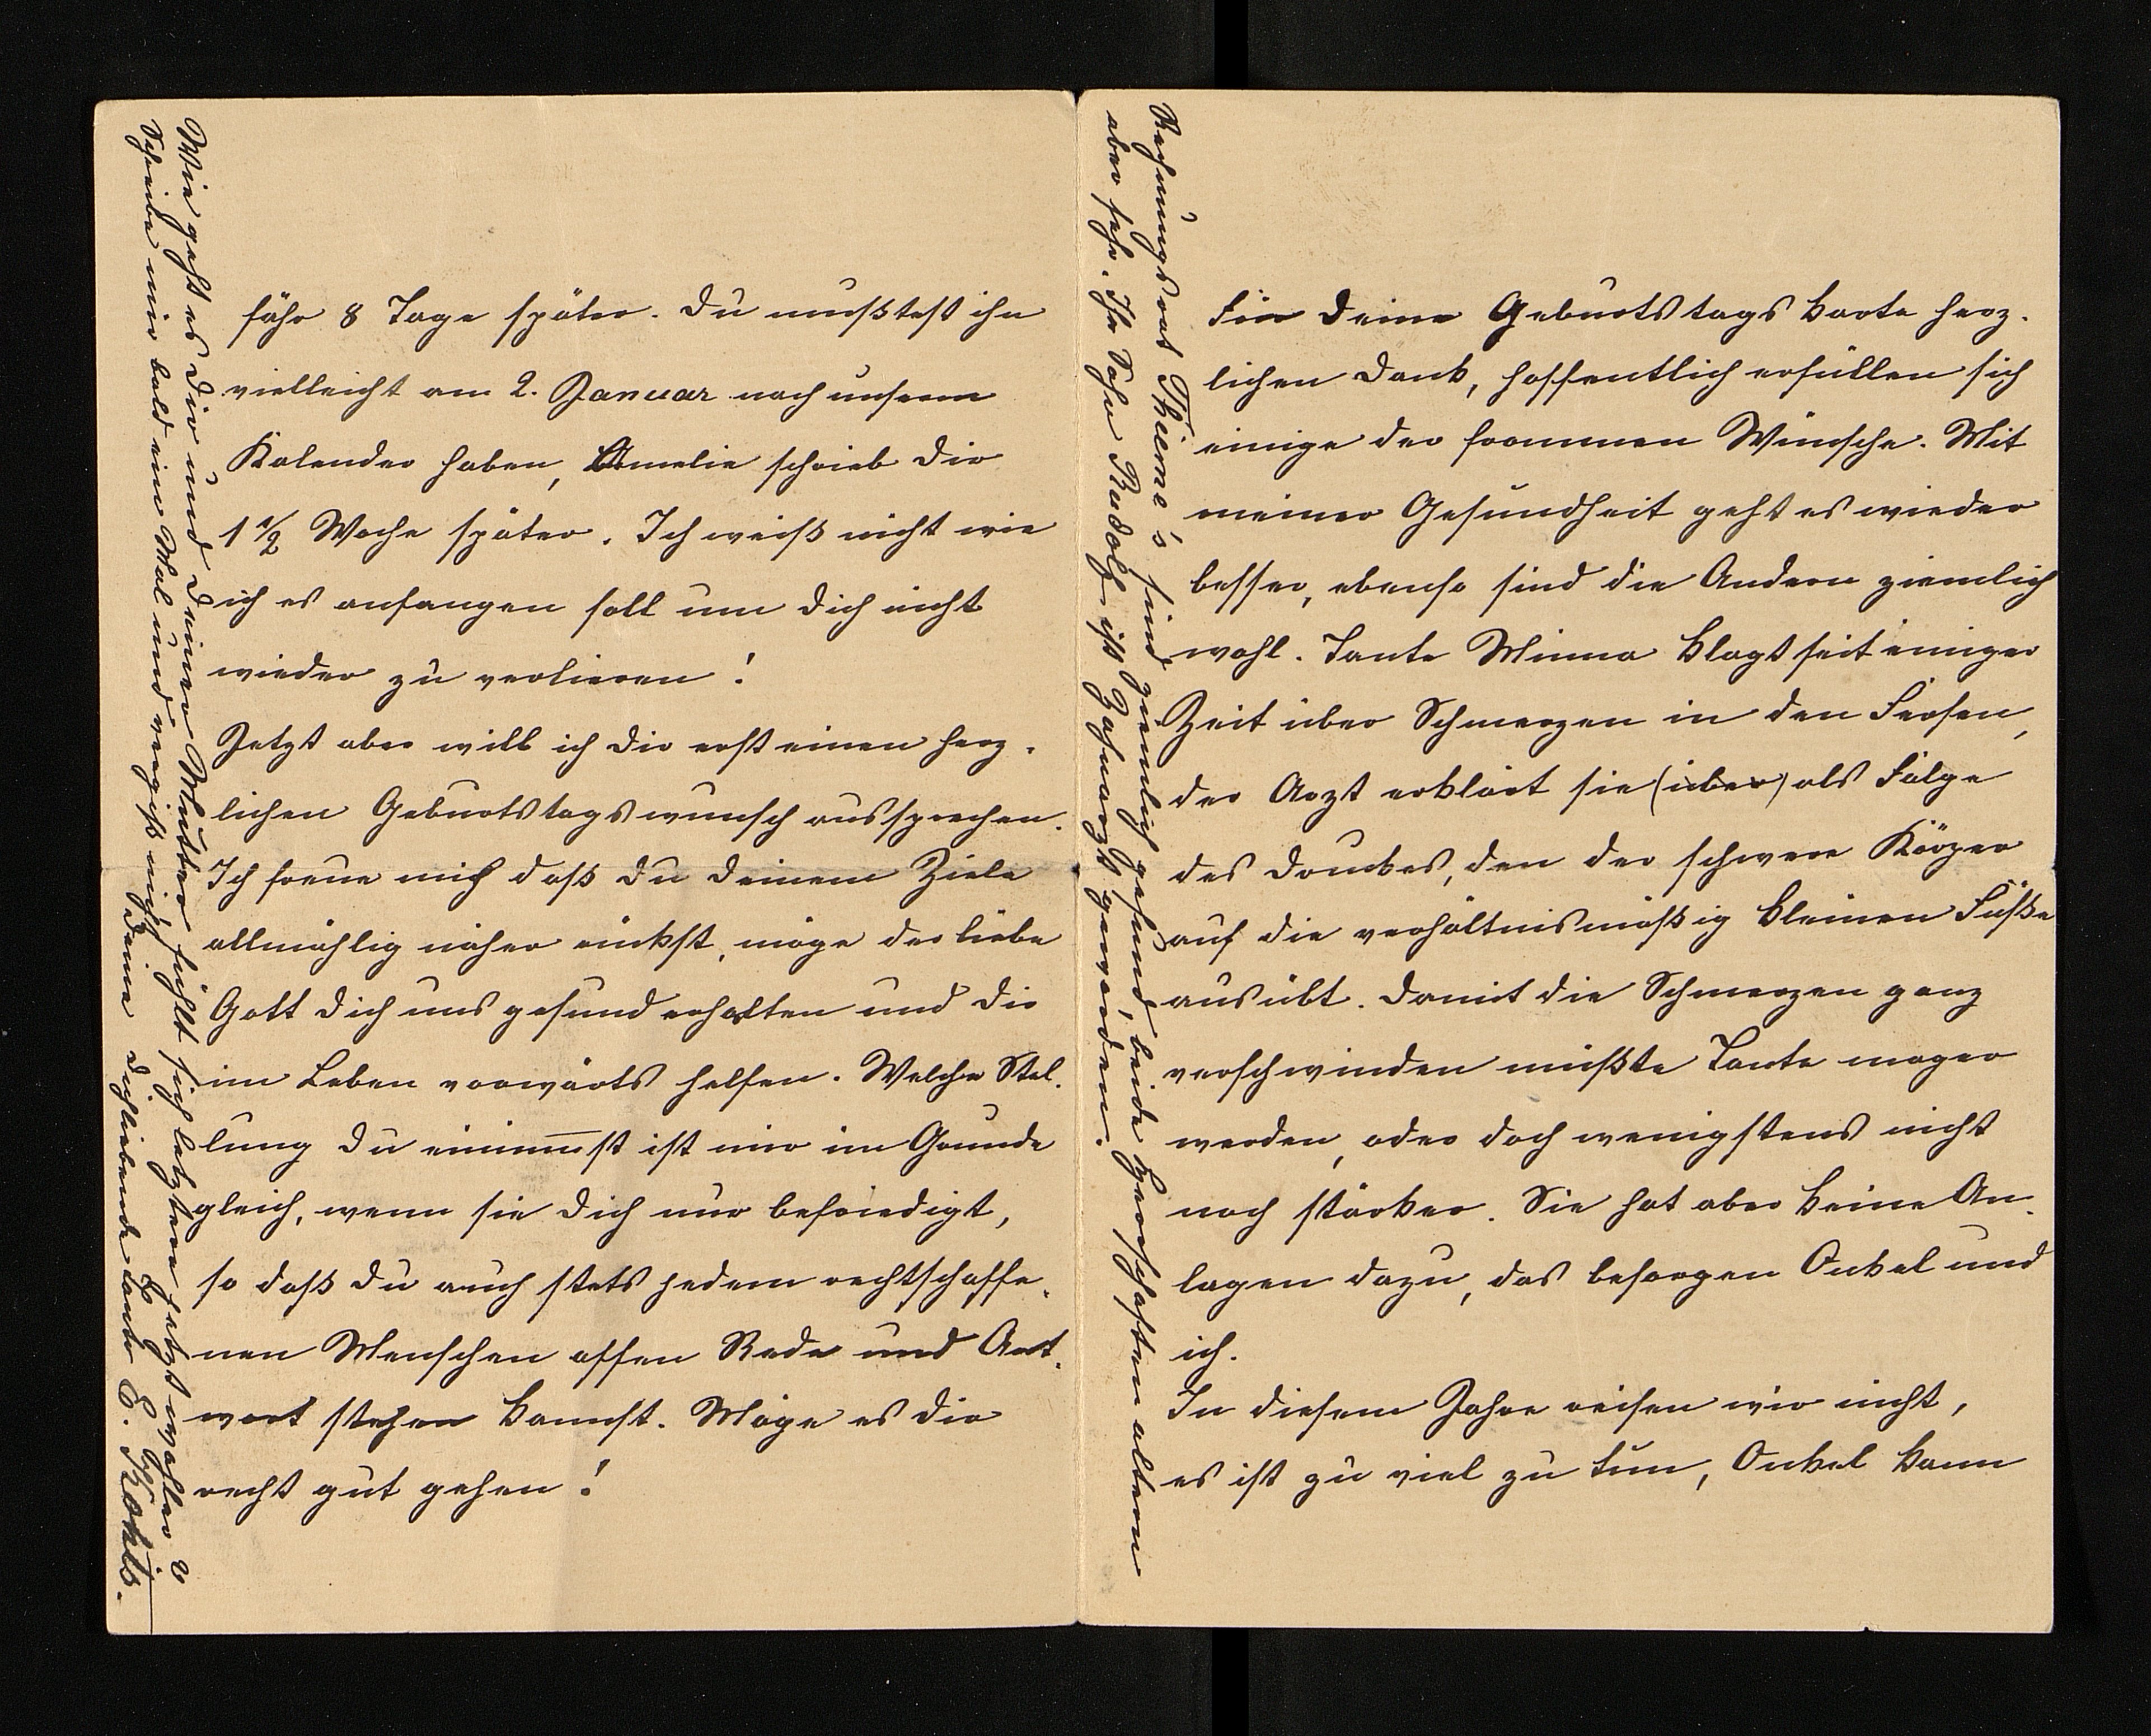 fähr 8 Tage später. Du mußtest ihn
vielleicht am 2. Januar nach unserm
Kalender haben, Amelie schrieb Dir
1 1/2 Woche später. Ich weiß nicht wie
ich es anfangen soll um Dich nicht
wieder zu verlieren!
Jetzt aber will ich Dir erst einen herz-
lichen Geburtstagswunsch aussprechen.
Ich freue mich daß Du Deinem Ziele
allmählig näher rückst, möge der liebe
Gott Dich uns gesund erhalten und Dir
im Leben vorwärts helfen. Welche Stel-
lung Du einim̅st ist mir im Grunde
gleich, wenn sie Dich nur befriedigt,
so daß Du auch stets jedem rechtschaffe-
nen Menschen offen Rede und Ant-
wort stehen kannst. Möge es Dir
recht gut gehen!
Wie geht es Dir und Deiner Mutter fühlt sich letztere jetzt wohler?
Schreibe mir bald ein Mal und vergiß nicht
Deine Dichliebende Tante E.
Für Deine Geburtstagskarte herz-
lichen Dank, hoffentlich erfüllen sich
einige der frommen Wünsche. Mit
meiner Gesundheit geht es wieder
besser, ebenso sind die Andern ziemlich
wohl. Tante Minna klagt seit einiger
Zeit über Schmerzen in den Fersen,
der Arzt erklärt sie (über) als Folge
des Druckes, den der schwere Körper
auf die verhältnismäßig kleinen Füße
ausübt. Damit die Schmerzen ganz
verschwinden müßte Tante mager
werden, oder doch wenigstens nicht
noch stärker. Sie hat aber keine An-
lagen dazu, das besorgen Onkel und
ich.
In diesem Jahre reisen wir nicht,
es ist zu viel zu tun, Onkel kann
Rechnungsrat Thieme's sind ziemlich gesund, beide Herrschaften altern
aber sehr. Ihr Sohn Rudolf ist Zahnarzt geworden.